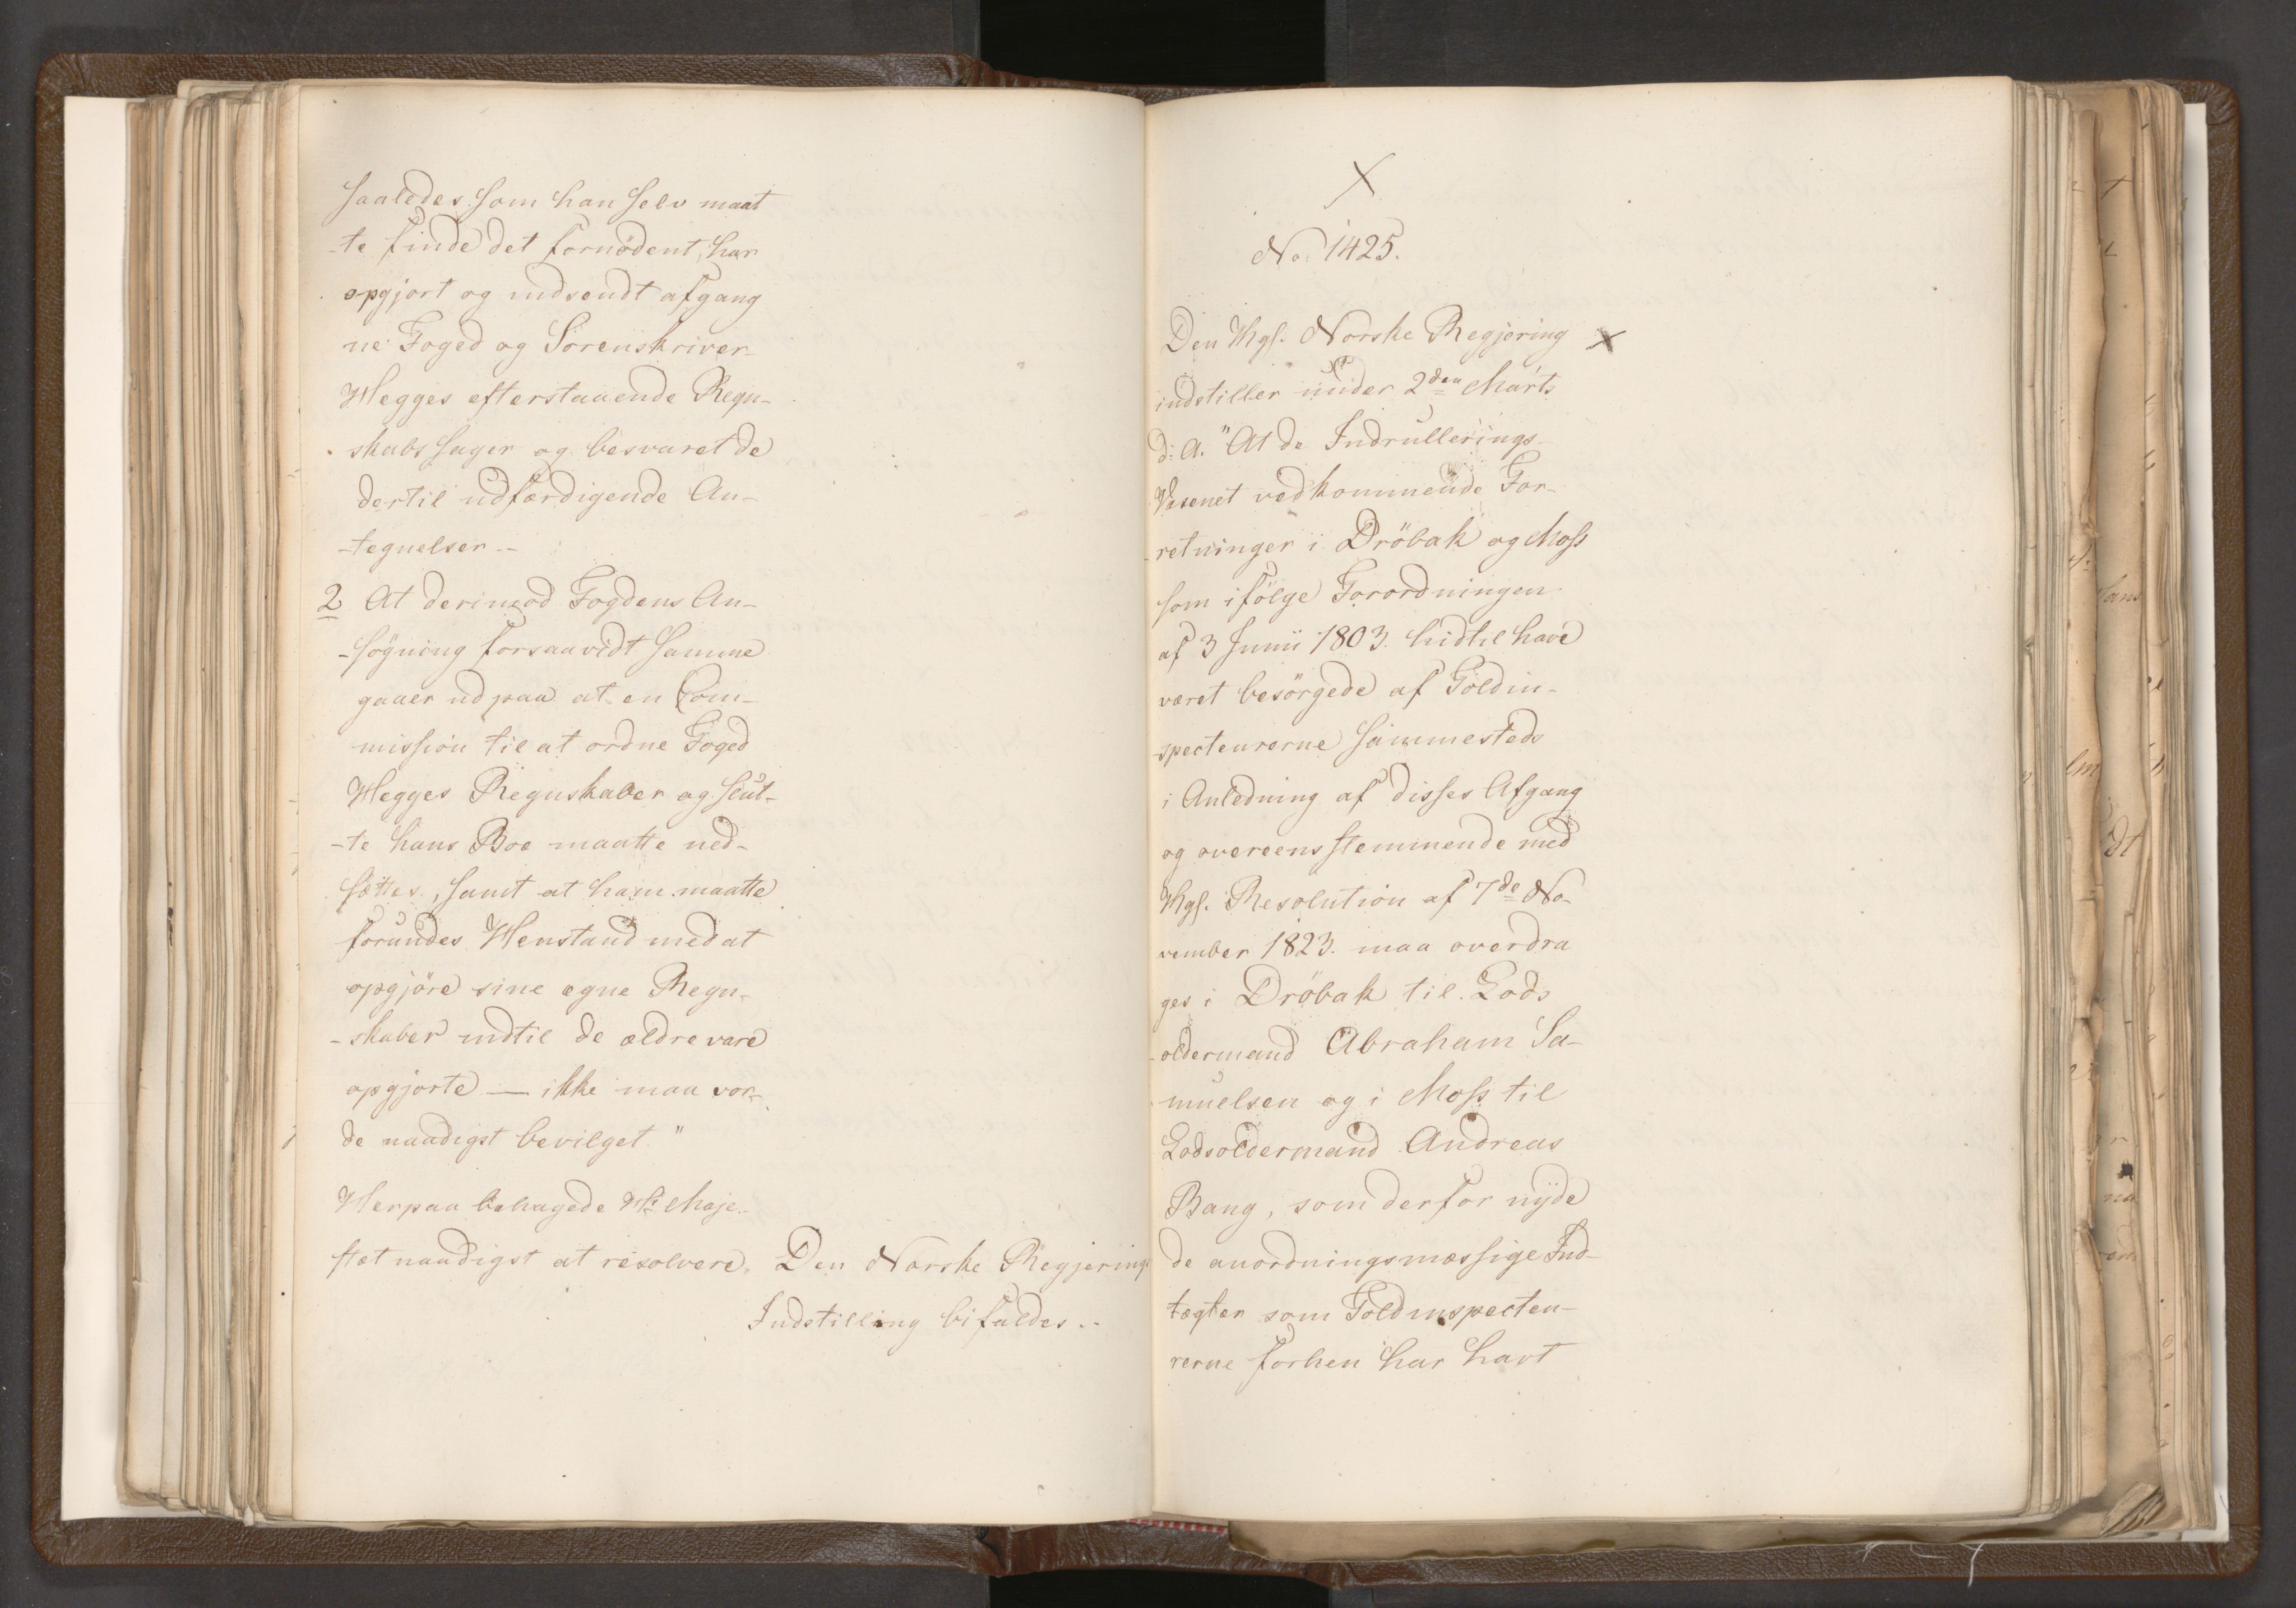 saaledes som han selv maat
-te finde det fornödent, har
opgjort og indsendt afgang
ne Foged og Sorenskriver
Hegges efterstaaende Regn-
skabs sager og besvaret de
dertil udfærdigende An-
-tegnelser.-
2 At derimod Fogdens An-
-søgning forsaavidt samme
gaaer ud paa at en Com-
mission til at ordne Foged
Hegges Regnskaber og slut-
-te hans Boe maatte ned-
sættes, samt at ham maatte
forundes Henstand med at
opgjöre sine egne Regn-
-skaber indtil de ældre vare
opgjorte — ikke maa vor-
de naadigst bevilget"
Herpaa behagede Hs Maje-
stæt naadigst at resolvere. Den Norske Regjerings
Indstilling bifaldes.-
X
No 1425.
Den Kgs. Norske Regjering X
indstiller under 2den Marts
d: A. "At de Indrullerings-
Væsenet vedkommende For-
-retninger i Dröbak og Moss
som ifölge Forordningen
af 3 Junii 1803. hidtil have
været besörgede af Toldin-
specteurerne sammesteds
i Anledning af disses Afgang
og overeensstemmende med
Kgs. Resolution af 7de No-
vember 1823. maa overdra
ges i Dröbak til Lods
-oldermand Abraham Sa-
muelsen og i Moss til
Lodsoldermand Andreas
Bang, som derfor nyde
de anordningsmæssige Ind-
tægter som Toldinspecteu-
rerne forhen har havt